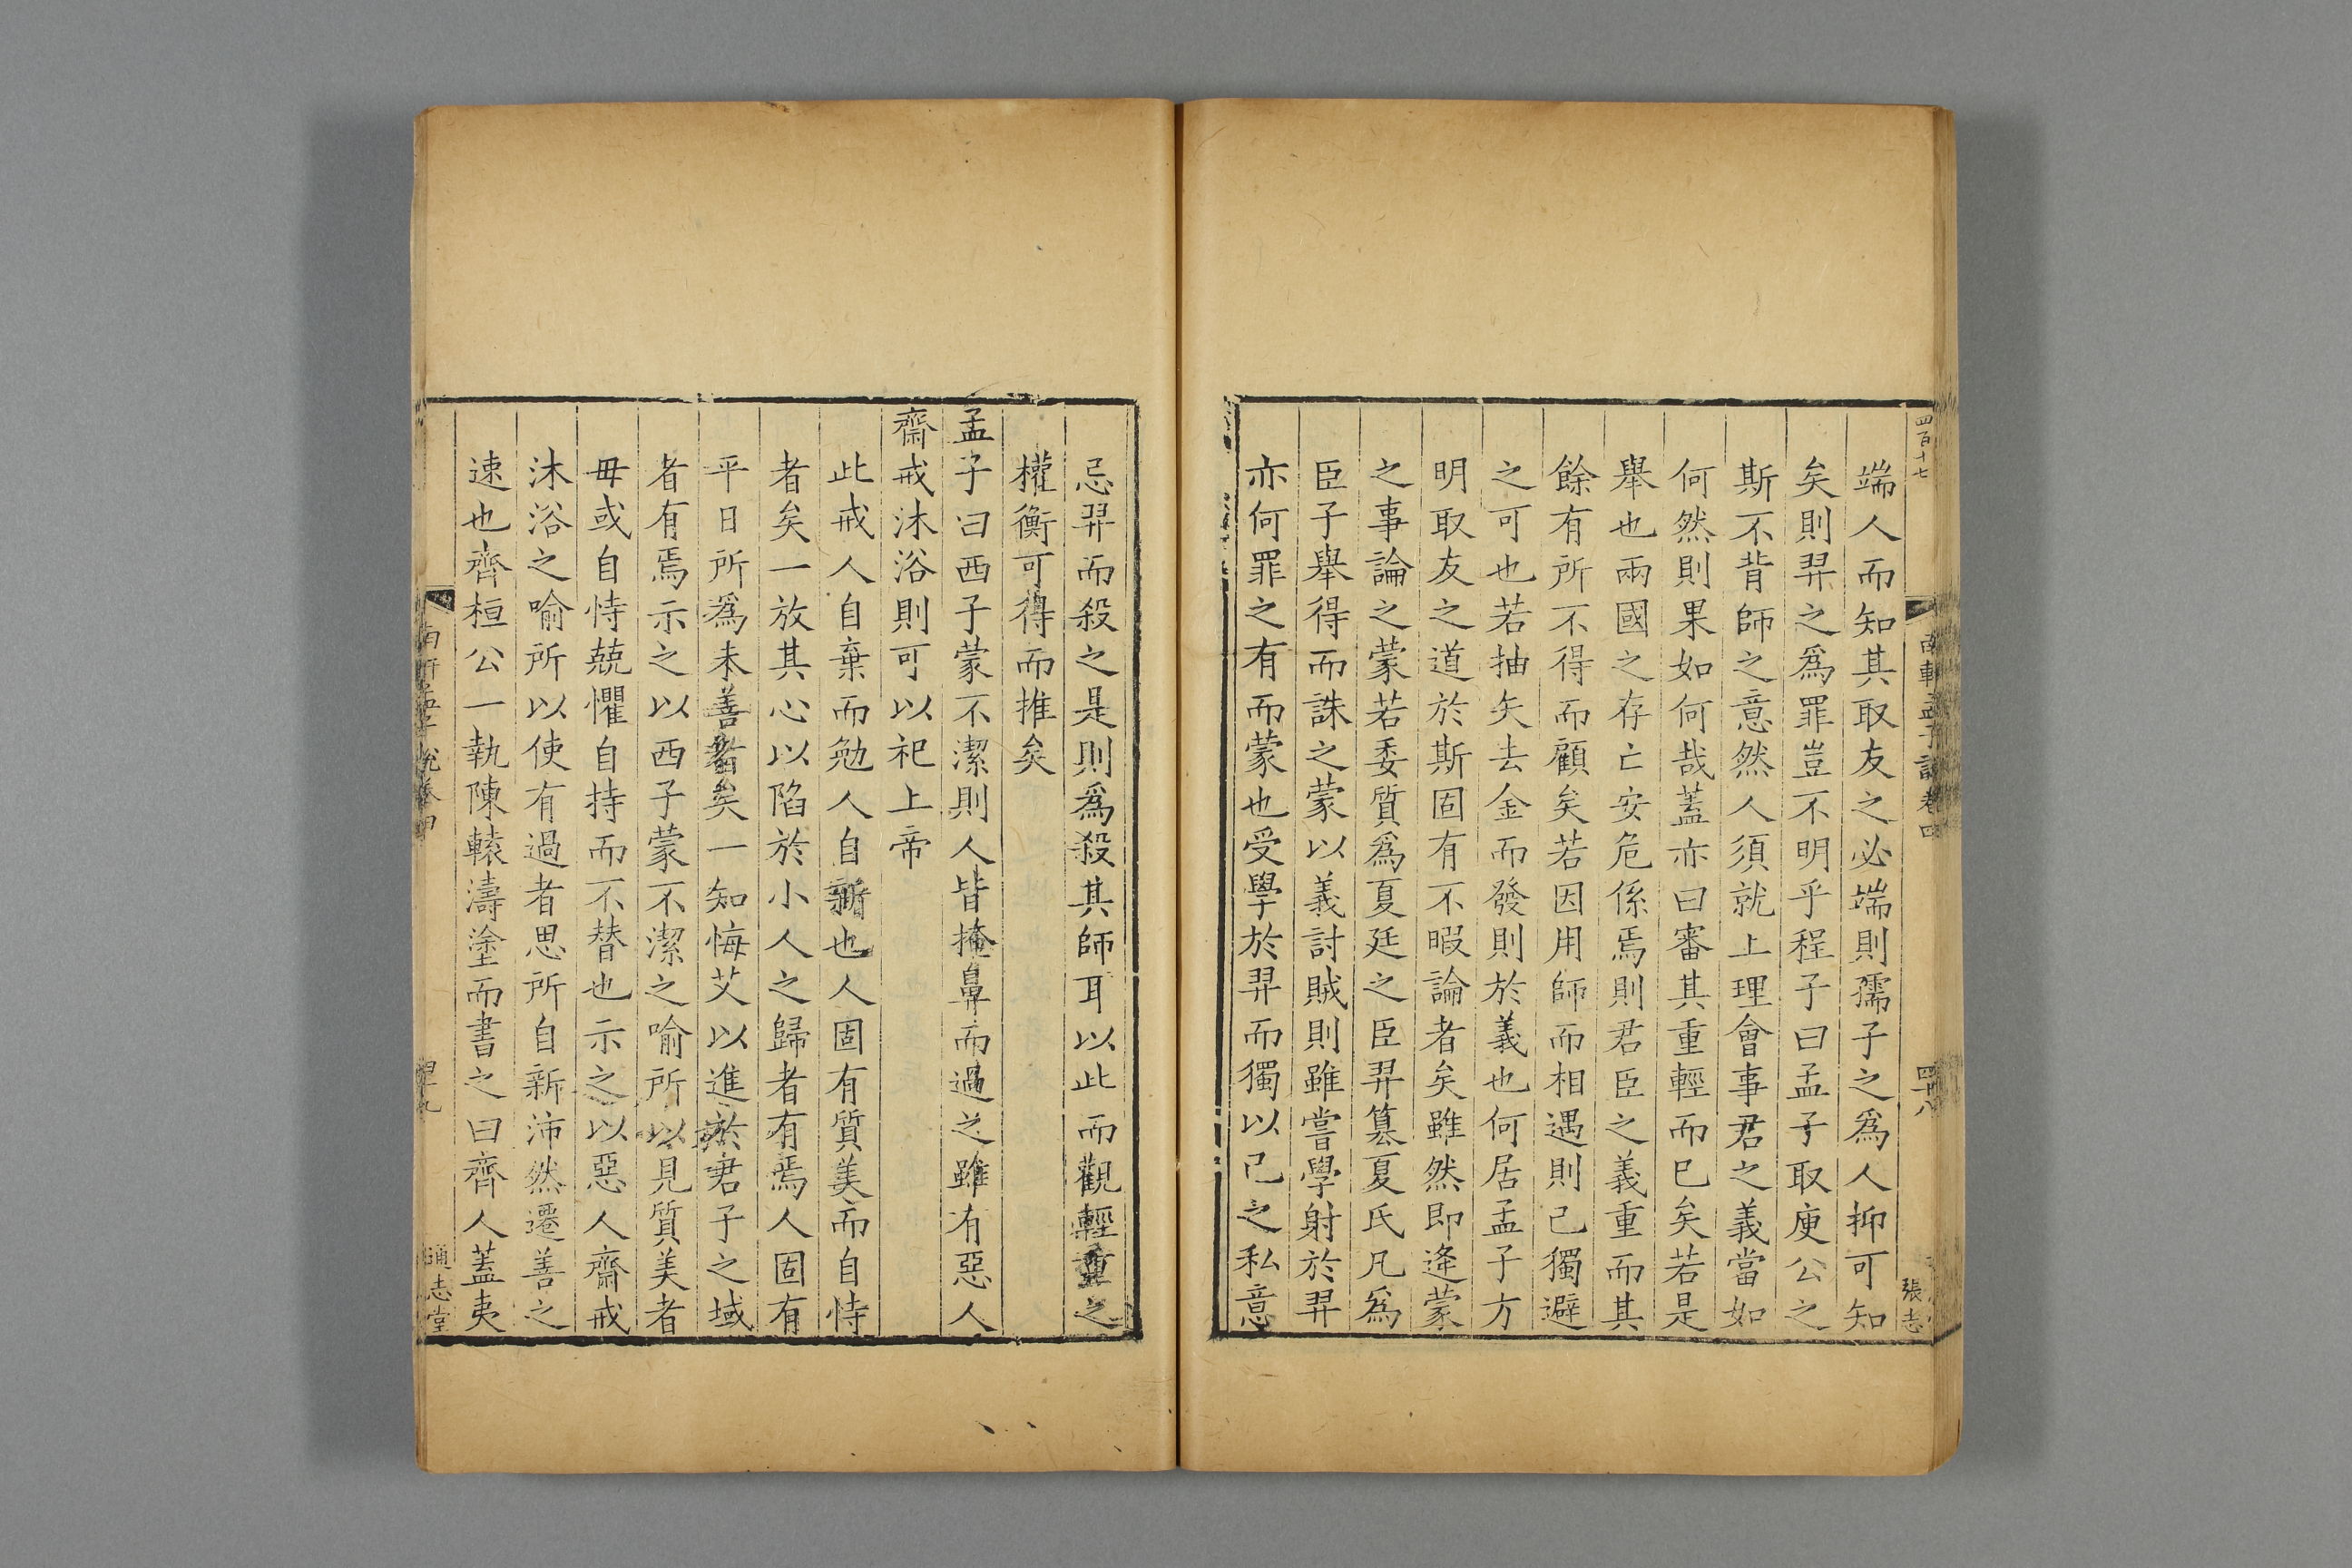 四百十七
南軒孟子説卷四
四十八
張志
端人而知其取友之必端則孺子之爲人抑可知
矣則羿之爲罪豈不明乎程子曰孟子取庾公之
斯不背師之意然人須就上理會事君之義當如
何然則果如何哉蓋亦曰審其重輕而已矣若是
舉也兩國之存亡安危係焉則君臣之義重而其
餘有所不得而顧矣若因用師而相遇則己獨避
之可也若抽矢去金而發則於義也何居孟子方
明取友之道於斯固有不暇論者矣雖然即逄蒙
之事論之蒙若委質爲夏廷之臣羿篡夏氏凡爲
臣子舉得而誅之蒙以義討賊則雖嘗學射於羿
亦何罪之有而蒙也受學於羿而獨以己之私意
忌羿而殺之是則爲殺其師耳以此而觀輕重之
權衡可得而推矣
孟子曰西子蒙不潔則人皆掩鼻而過之雖有惡人
齋戒沐浴則可以祀上帝
此戒人自棄而勉人自新也人固有質美而自恃
者矣一放其心以陷於小人之歸者有焉人固有
平日所爲未善者矣一知悔艾以進於君子之域
者有焉示之以西子蒙不潔之喻所以見質美者
毋或自恃兢懼自持而不替也示之以惡人齋戒
沐浴之喻所以使有過者思所自新沛然遷善之
速也齊桓公一執陳轅濤塗而書之曰齊人蓋夷
南軒孟子說卷四
四十九
通志堂